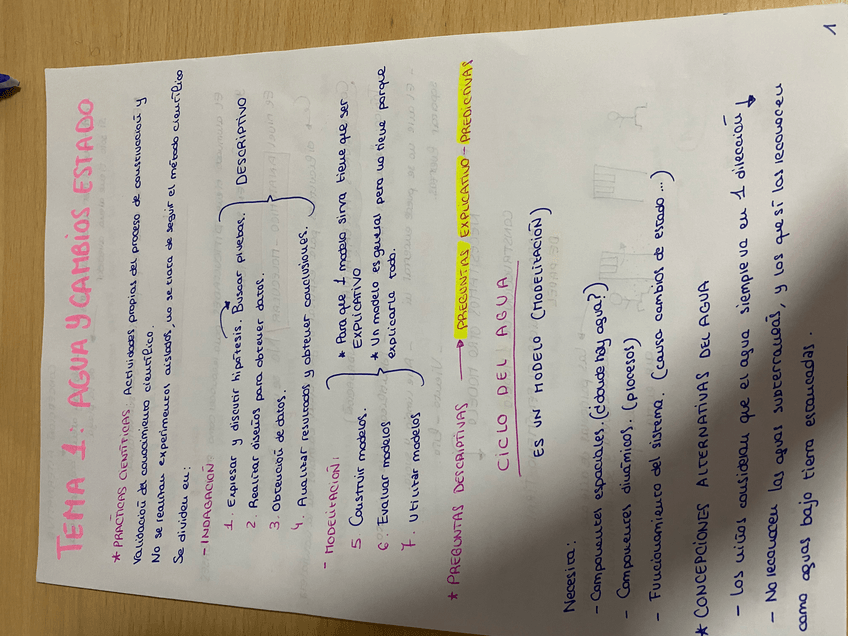 TEMA 1: AGUA Y CAMBIOS ESTADO
* PRÁCTICAS CIENTÍFICAS. Actividades propias del proceso de construcción y
validación de conocimiento científico.
No se realizan experimentos aislados, no se trata de seguir el método científico
Se dividen en:
- INDAGACIÓN:
1. Expresar y discutir hipótesis. Buscar pruebas.
2. Realizar diseños para obtener datos.
3. Obtención de datos.
4. Analizar resultados y obtener conclusiones.
DESCRIPTIVO
- MODELIZACIÓN:
5 Construir modelos.
6. Evaluar modelos
7. Utilizar modelos
* Para que 1 modelo sirva tiene que ser
EXPLICATIVO
* Un modelo es general pero no tiene porque
explicarla todo.
* PREGUNTAS DESCRIPTIVAS → PREGUNTAS EXPLICATIVO - PREDICATIVAS
CICLO DEL AGUA
ES UN MODELO (MODELITACIÓN)
Necesita:
- Componentes espaciales. (¿dónde hay agua?)
- Componentes dinámicos. (procesos)
- Funcionamiento del sistema. (causa cambios de estado...)
* CONCEPCIONES ALTERNATIVAS DEL AGUA
- Los niños consideran que el agua siempre va en 1 dirección ↓
- No reconocen las aguas subterráneas, y los que sí las reconocen
como aguas bajo tierra estancadas.
1